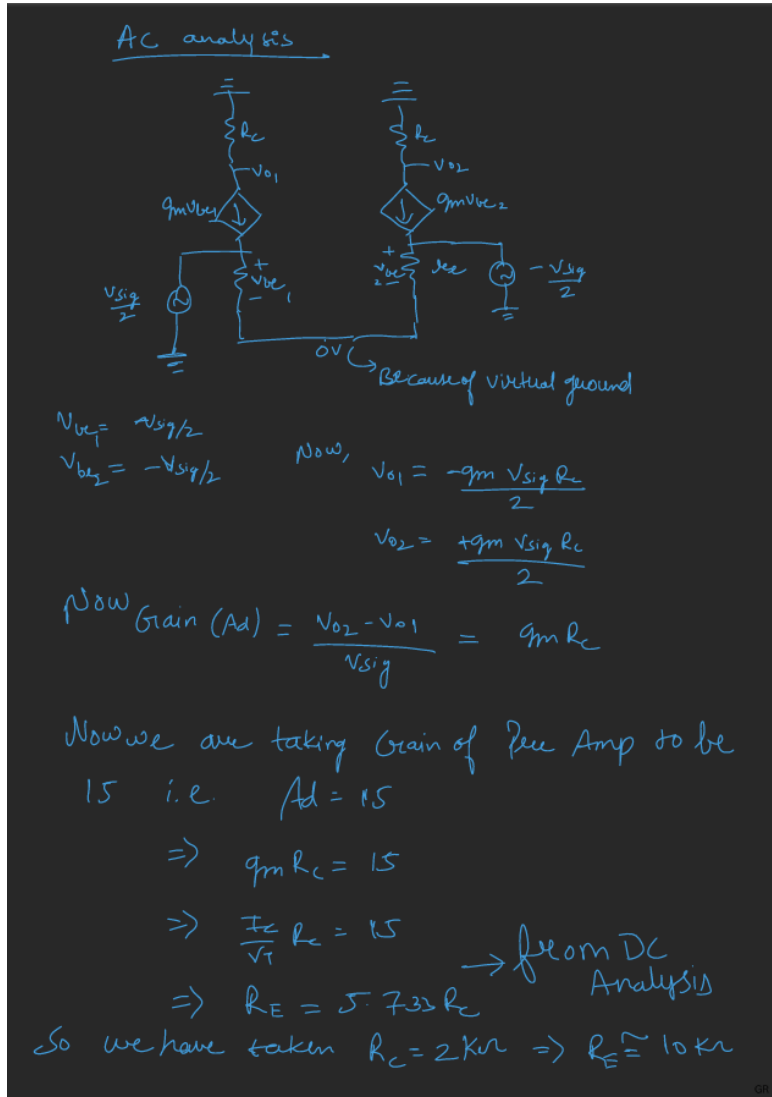 AC analysis
Rc
Rc
Vo1
Vo2
gmVbe1
gmVbe2
+
Vbe1
-
+
Vbe2
-
Vsig/2
-Vsig/2
0V
Because of virtual ground
Vbe1 = Vsig/2
Vbe2 = -Vsig/2
Now, Vo1 = -gm Vsig Rc / 2
Vo2 = +gm Vsig Rc / 2
Now Gain (Ad) = Vo2 - Vo1 / Vsig = gm Rc
Now we are taking Gain of Pre Amp to be
15 i.e. Ad = 15
=> gm Rc = 15
=> Ic/VT Rc = 15
=> RE = 5.733 Rc → from DC Analysis
So we have taken Rc = 2KΩ => RE ≅ 10KΩ
GR